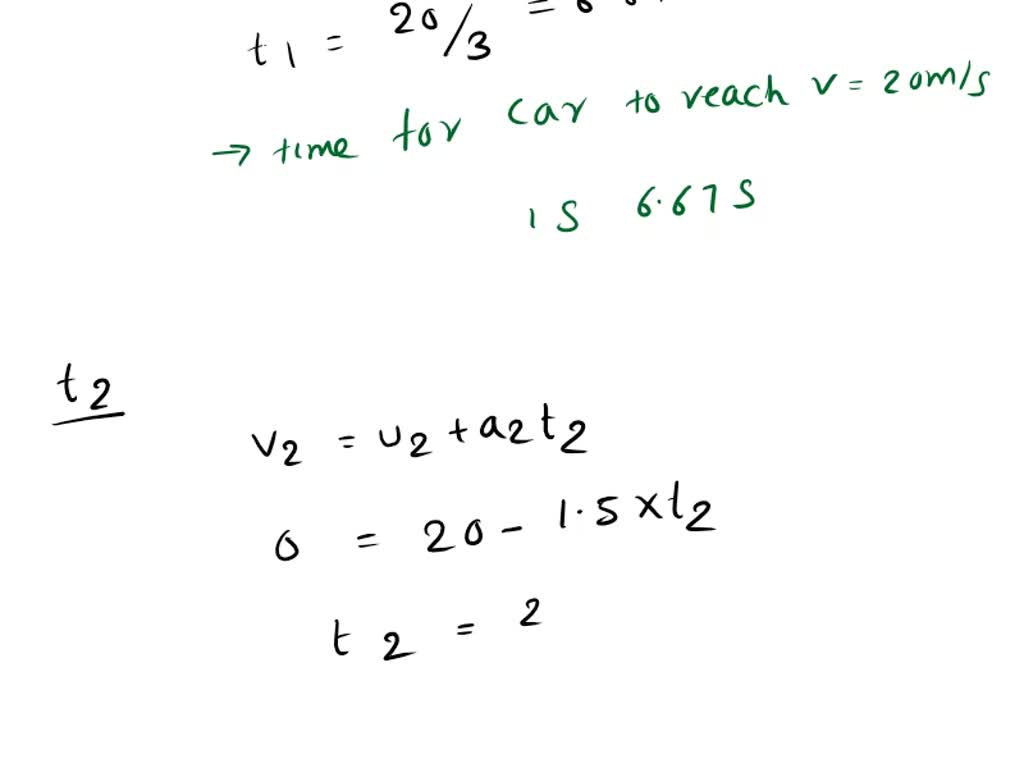 t1 = 20/3 =
→ time for car to reach v = 20m/s
is 6.67s
t2
v2 = u2 + a2t2
0 = 20 - 1.5xt2
t2 = 2